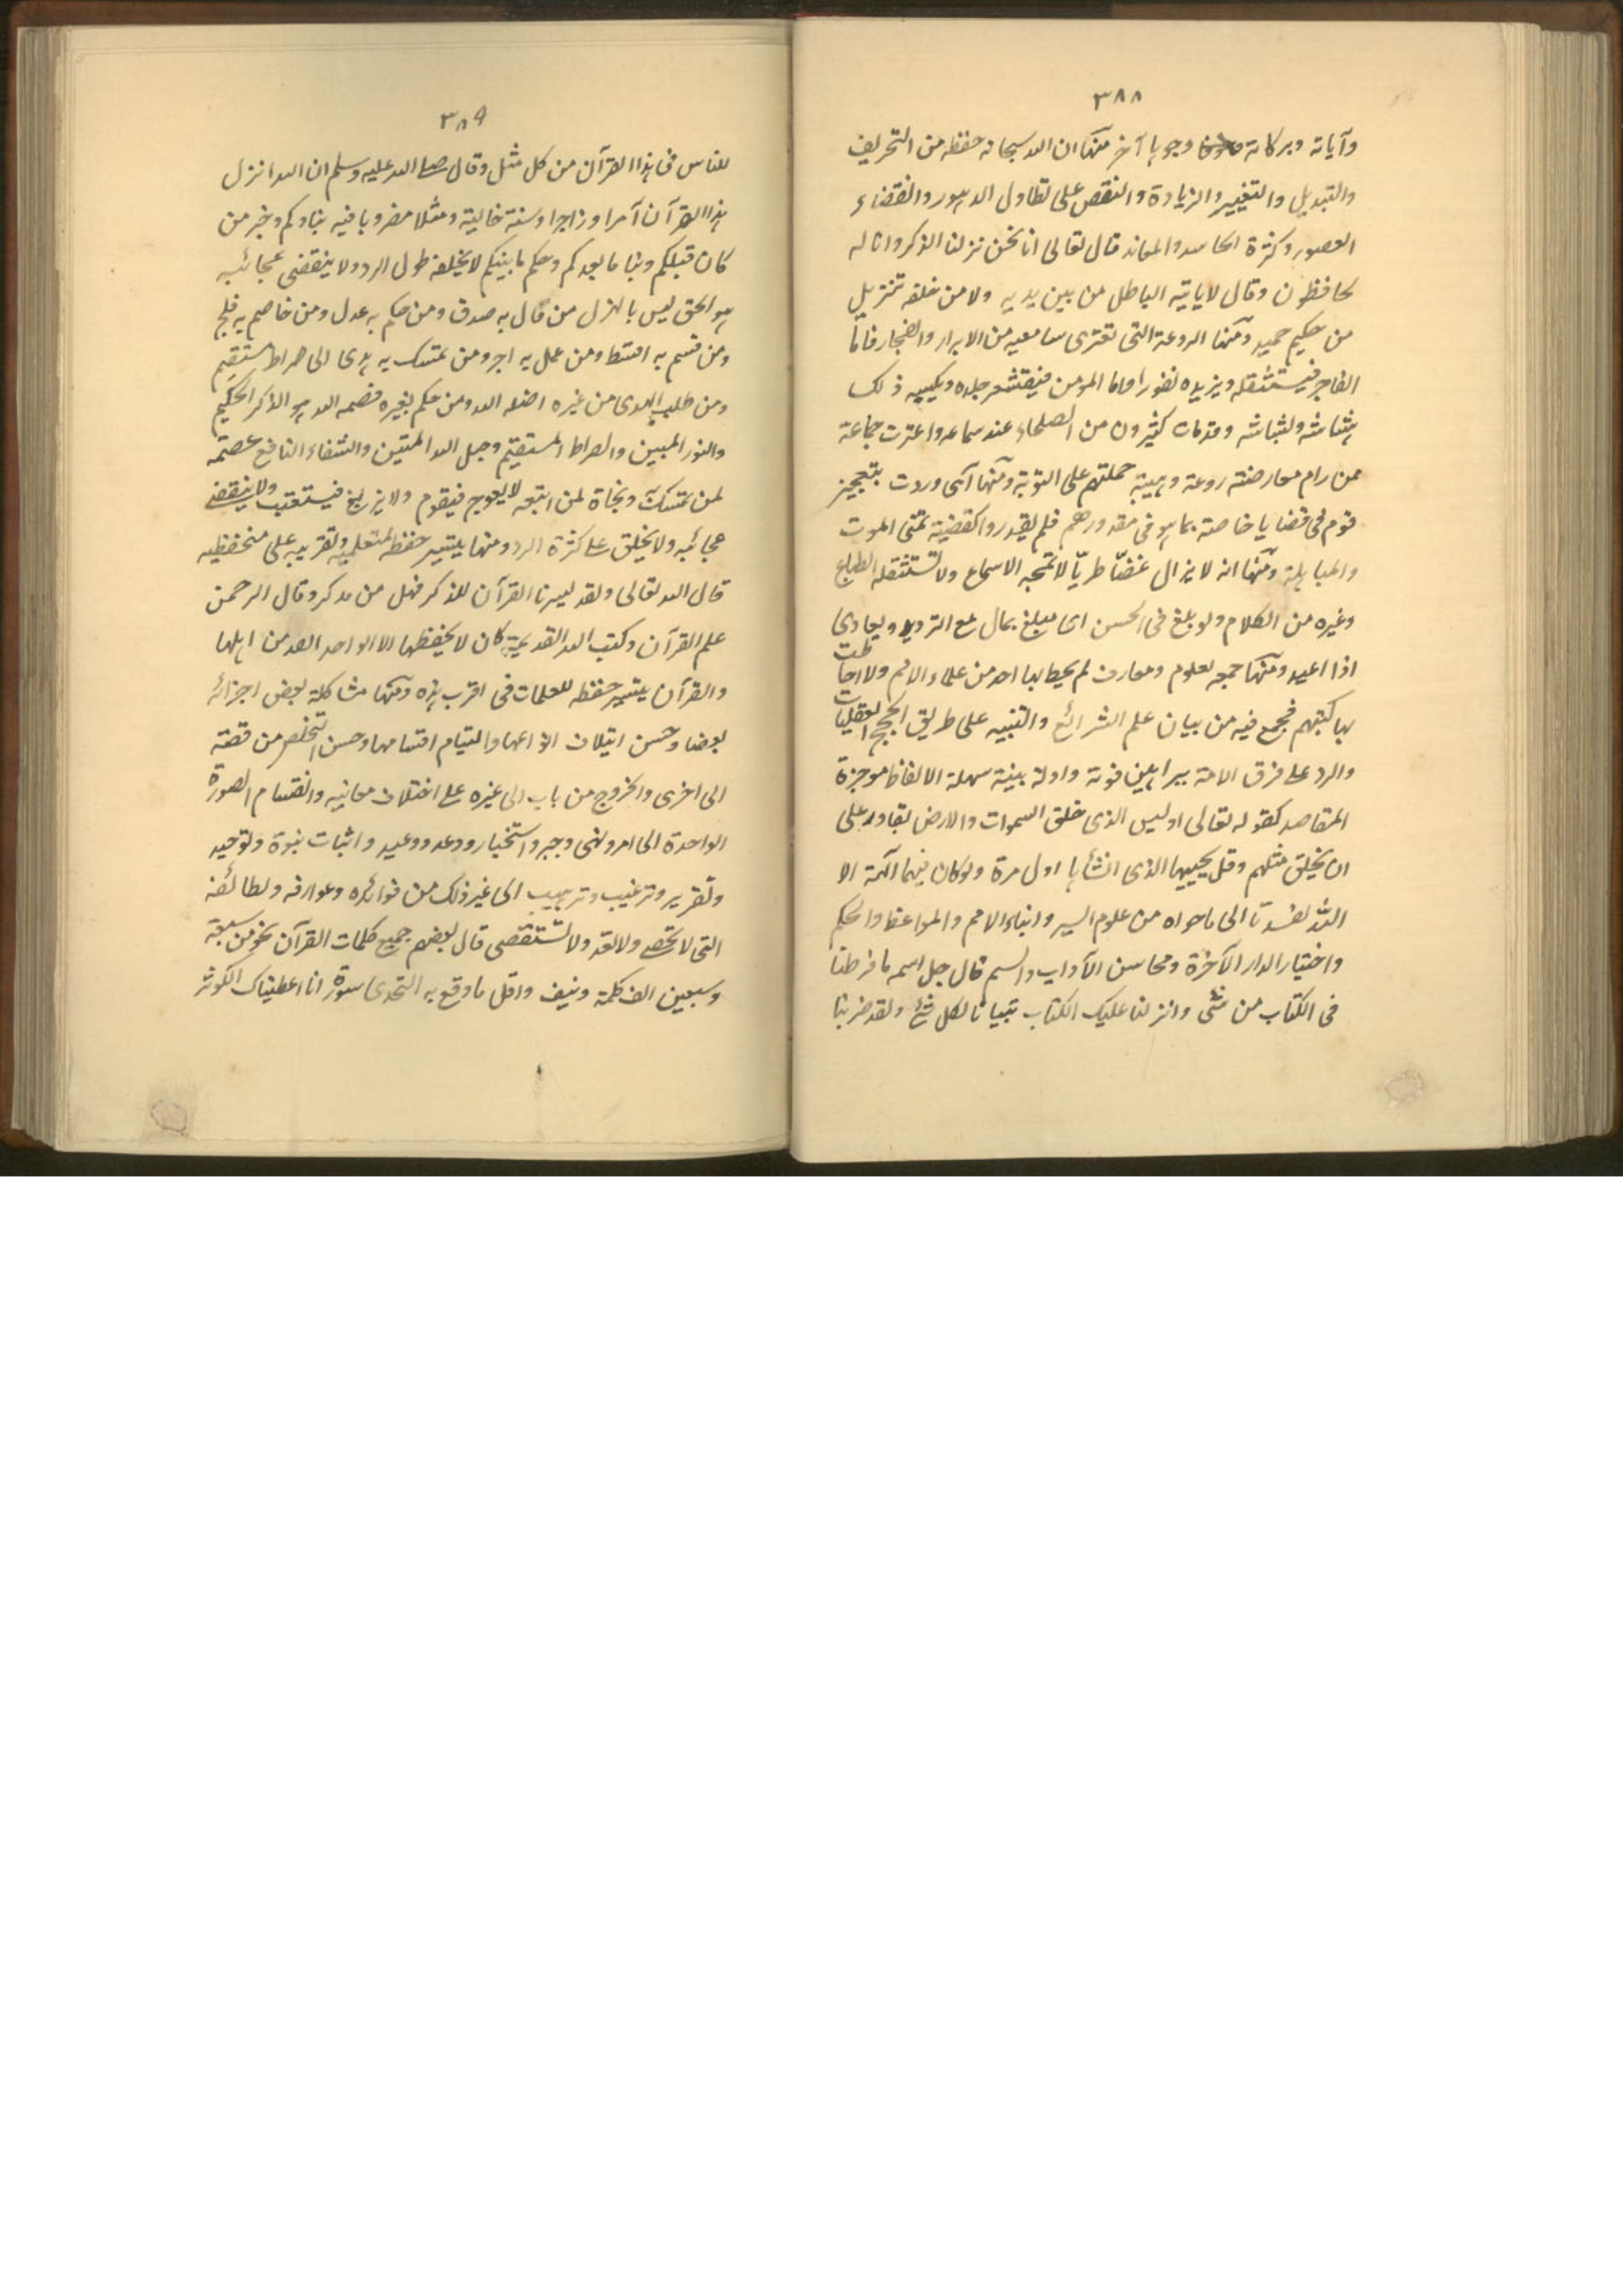 ٣٨٨
وآياته وبركاته وجوها آخر منها ان الله سبحانه حفظه من التحريف
والتبديل والتغيير والزيادة والنقص على تطاول الدهور وانقضاء
العصور وكثرة الحاسد والمعاند قال تعالى انا نحن نزلنا الذكر وانا له
لحافظون وقال لا ياتيه الباطل من بين يديه ولا من خلفه تنزيل
من حكيم حميد ومنها الروعة التى تعترى سامعيه من الابرار والفجار فاما
الفاجر فيستثقله ويزيده نفورا واما المومن فيقشعر جلده ويكسبه ذلك
هشاشة وبشاشة وقد مات كثيرون من الصلحاء عند سماعه واعترت جماعة
ممن رام معارضته روعة وهيبة حملتهم على التوبة ومنها آى وردت بتعجيز
قوم فى قضايا خاصة بما هو فى مقدورهم فلم يقدروا كقضية تمنى الموت
والمباهلة ومنها انه لا يزال غضّا طريّا لا تمجه الاسماع ولا تستثقله الطباع
وغيره من الكلام ولو بلغ فى الحسن اى مبلغ يمل مع الترديد ويعادى
اذا اعيد ومنها جمعه لعلوم ومعارف لم يحط بها احد من علماء الامم ولا احاطت
بها كتبهم فجمع فيه من بيان علم الشرائع والتنبيه على طريق الحجج العقليات
والرد على فرق الامة ببراهين قوية وادلة بينة سهلة الالفاظ موجزة
المقاصد كقوله تعالى اوليس الذى خلق السموات والارض بقادر على
ان يخلق مثلهم وقل يحييها الذى انشأها اول مرة ولو كان فيهما آلهة الا
اللّه لفسدتا الى ما حواه من علوم السير وانباء الامم والمواعظ والحكم
واختيار الدار الآخرة ومحاسن الآداب والسم قال جل اسمه ما فرطنا
فى الكتاب من شئى وانزلنا عليك الكتاب تبيانا لكل شئ ولقد ضربنا
٣٨٩
للناس فى هذا القرآن من كل مثل وقال صلے الله عليه وسلم ان الله انزل
هذا القرآن آمرا وزاجرا وسنة خالية ومثلا مضروبا فيه نباوكم وخبر من
كان قبلكم ونبا ما بعدكم وحكم ما بينكم لا يخلقه طول الرد ولا ينقضى عجائبه
هو الحق ليس بالهزل من قال به صدق ومن حكم به عدل ومن خاصم به فلج
ومن قسم به اقسط ومن عمل به اجر ومن تمسك به هدى الى صراط مستقيم
ومن طلب الهدى من غيره اضله الله ومن حكم بغيره قصمه الله هو الذكر الحكيم
والنور المبين والصراط المستقيم وحبل الله المتين والشفاء النافع عصمة
لمن تمسك به ونجاة لمن اتبعه لا يعوج فيقوم ولا يزيغ فيستعتب ولا ينقضے
عجائبه ولا يخلق على كثرة الرد ومنها تيسير حفظه لمتعلميه وتقريبه على متحفظيه
قال الله تعالى ولقد يسرنا القرآن للذكر فهل من مدكر وقال الرحمن
علم القرآن وكتب الله القديمة كان لا يحفظها الا الواحد الصد من اهلها
والقرآن يتيسر حفظه للغلمان فى اقرب مدة ومنها مشاكلة بعض اجزائه
بعضا وحسن ايتلاف انواعها والتيام اقسامها وحسن التخلص من قصة
الى اخرى والخروج من باب الى غيره على اختلاف معانيه وانقسام الصورة
الواحدة الى امر ونهى وخبر واستخبار ووعد ووعيد واثبات نبوة وتوحيد
وتقرير وترغيب وترهيب الى غير ذلك من فوائده وعوارفه ولطائفه
التى لا تحصے ولا تعد ولا تستقصى قال بعضهم جميع كلمات القرآن نحو من سبعة
وسبعين الف كلمة ونيف واقل ما وقع به التحدى سورة انا اعطيناك الكوثر